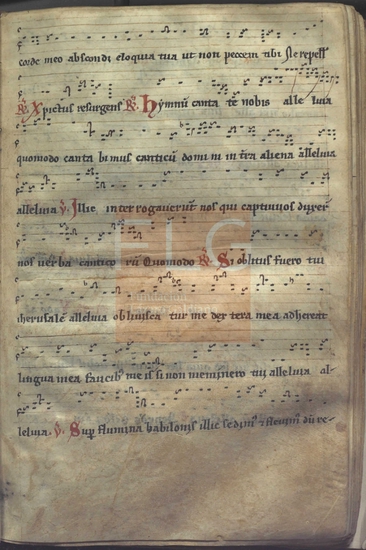 corde meo abscondi eloquia tua ut non peccem tibi
resurgens Hymnū canta te nobis alle luia
quomodo canta bi mus canticū domi ni in tr̄a aliena alleluia
alleluia Illic in ter rogaverunt nos qui captiuos
nos uer ba cantico rū Quomodo Si oblitus fuero tui
iherusalē alleluia obliuisca tur me dex tera mea adhereat
lingua mea faucib᷒ me is si non meminero tui alleluia al-
leluia. Sup̄ flumina babilonis illic